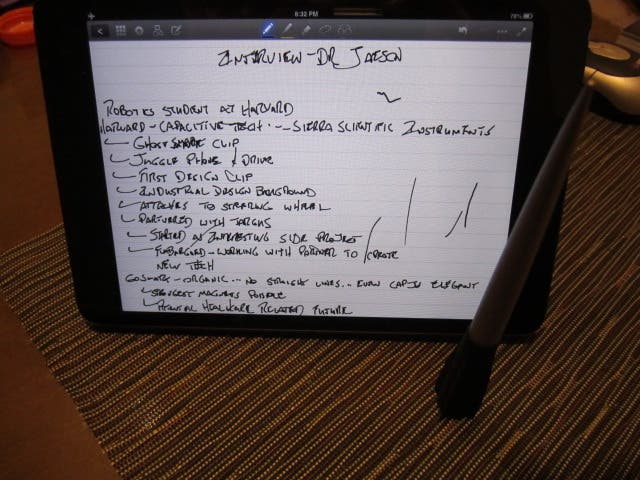 6:32 PM
78%
INTERVIEW - DR JASON
ROBOTICS STUDENT AT HARVARD
HARVARD - CAPACITIVE TECH - SIERRA SCIENTIFIC INSTRUMENTS
CLIP
JUGGLE PHONE & DRIVE
FIRST DESIGN CLIP
INDUSTRIAL DESIGN BACKGROUND
ATTACHES TO STEERING WHEEL
PARTNERED WITH TARGUS
STARTED AS INTERESTING SIDE PROJECT
- WORKING WITH PARTNER TO CREATE
NEW TECH
- ORGANIC ... NO STRAIGHT LINES .. EVEN CAP IN ELEGANT
STRONGEST MAGNETS POSSIBLE
POTENTIAL HEALTHCARE RELATED FUTURE